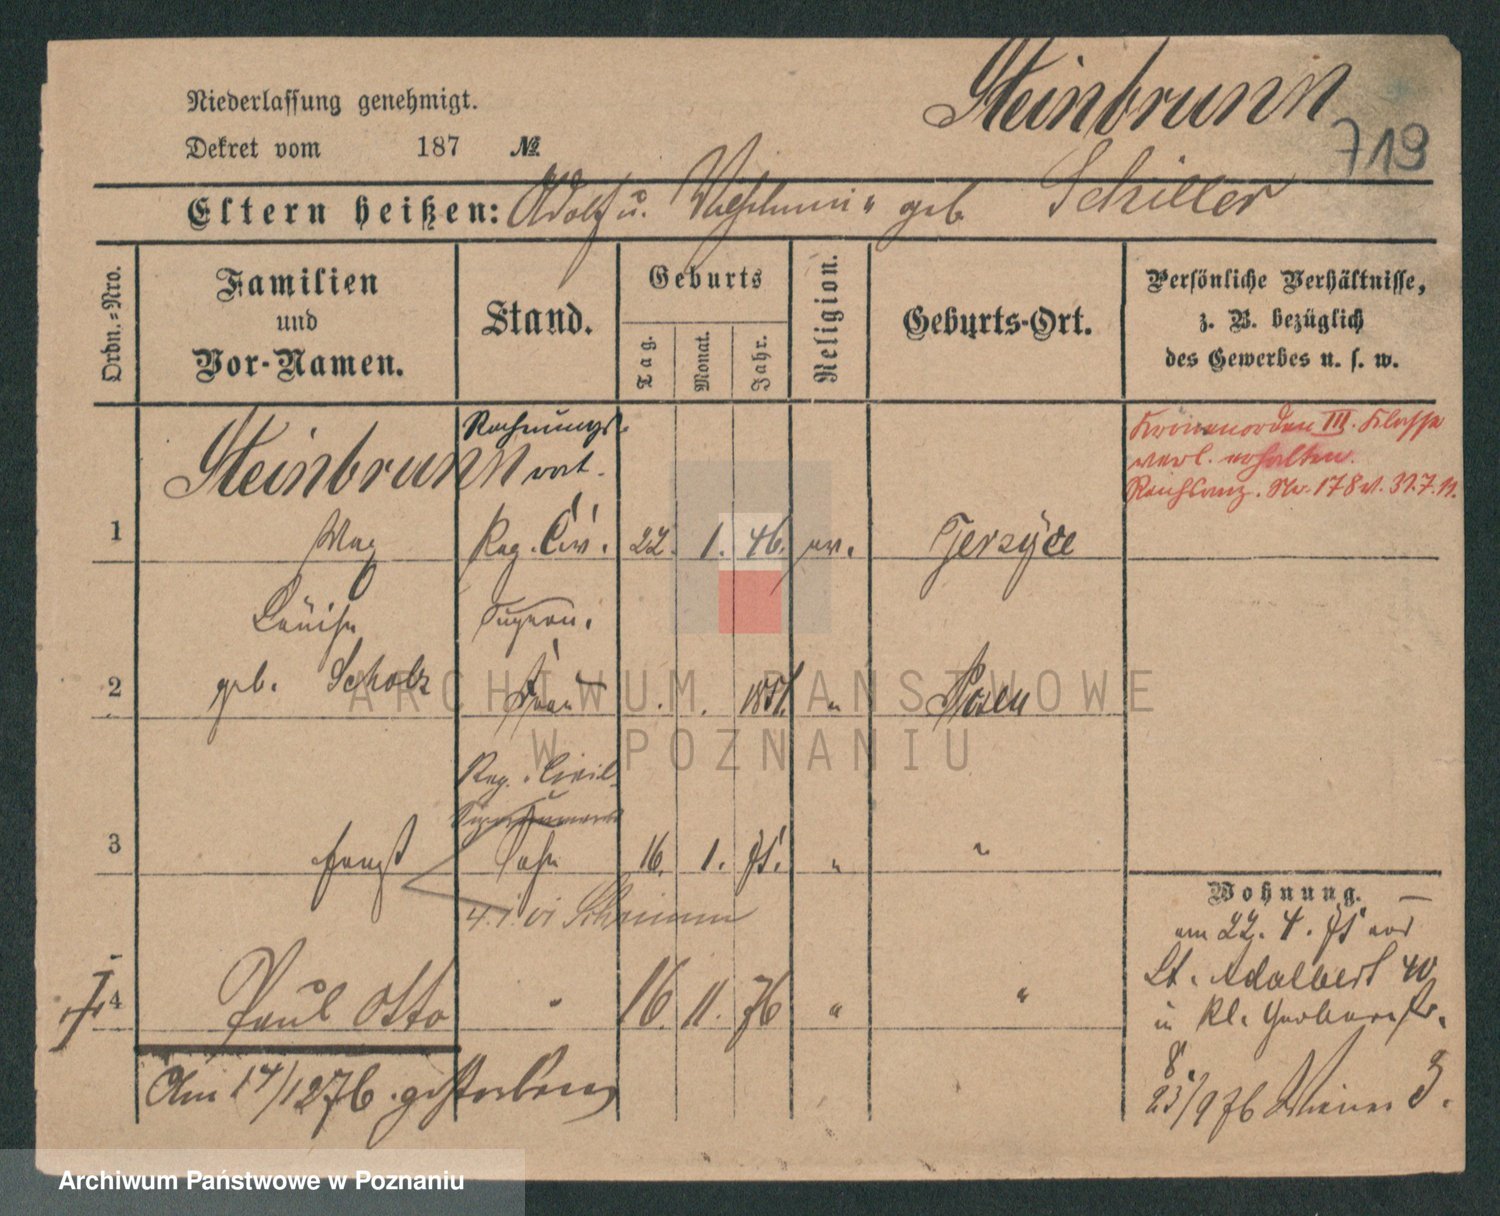 Steinbrunn
719
Niederlassung genehmigt.
Dekret vom 187 №
Eltern heißen: Adolf u. Wilhelmine geb Schiller
Ordn.=Nro.
Familien
und
Vor-Namen.
Stand.
Geburts
Tag.
Monat.
Jahr.
Religion.
Geburts-Ort.
Persönliche Verhältnisse,
z. B. bezüglich
des Gewerbes u. s. w.
Steinbrunn
Rechnungs-
rat.
Kronenorden III. Klasse
verl. erhalten.
Reichsanz. Nr. 178 v. 31.7.11.
1 Max Reg. Civ. 22. 1. 46. ev. Jerzyce
Louise Supern.
2 geb. Scholz Frau . . 1851. " Posen
Reg. Civil
Supernumerar
3 Ernst Sohn 16. 1. 75. " "
4.1.01 Schrimm
Wohnung.
am 22. 4. 75 von
St. Adalbert 40
in Kl. Gerberstr.
8
4 Paul Otto " 16. 11. 76 " "
Am 14/12 76 gestorben
23/9 76 Wiener 3.
ARCHIWUM PAŃSTWOWE
W POZNANIU
Archiwum Państwowe w Poznaniu